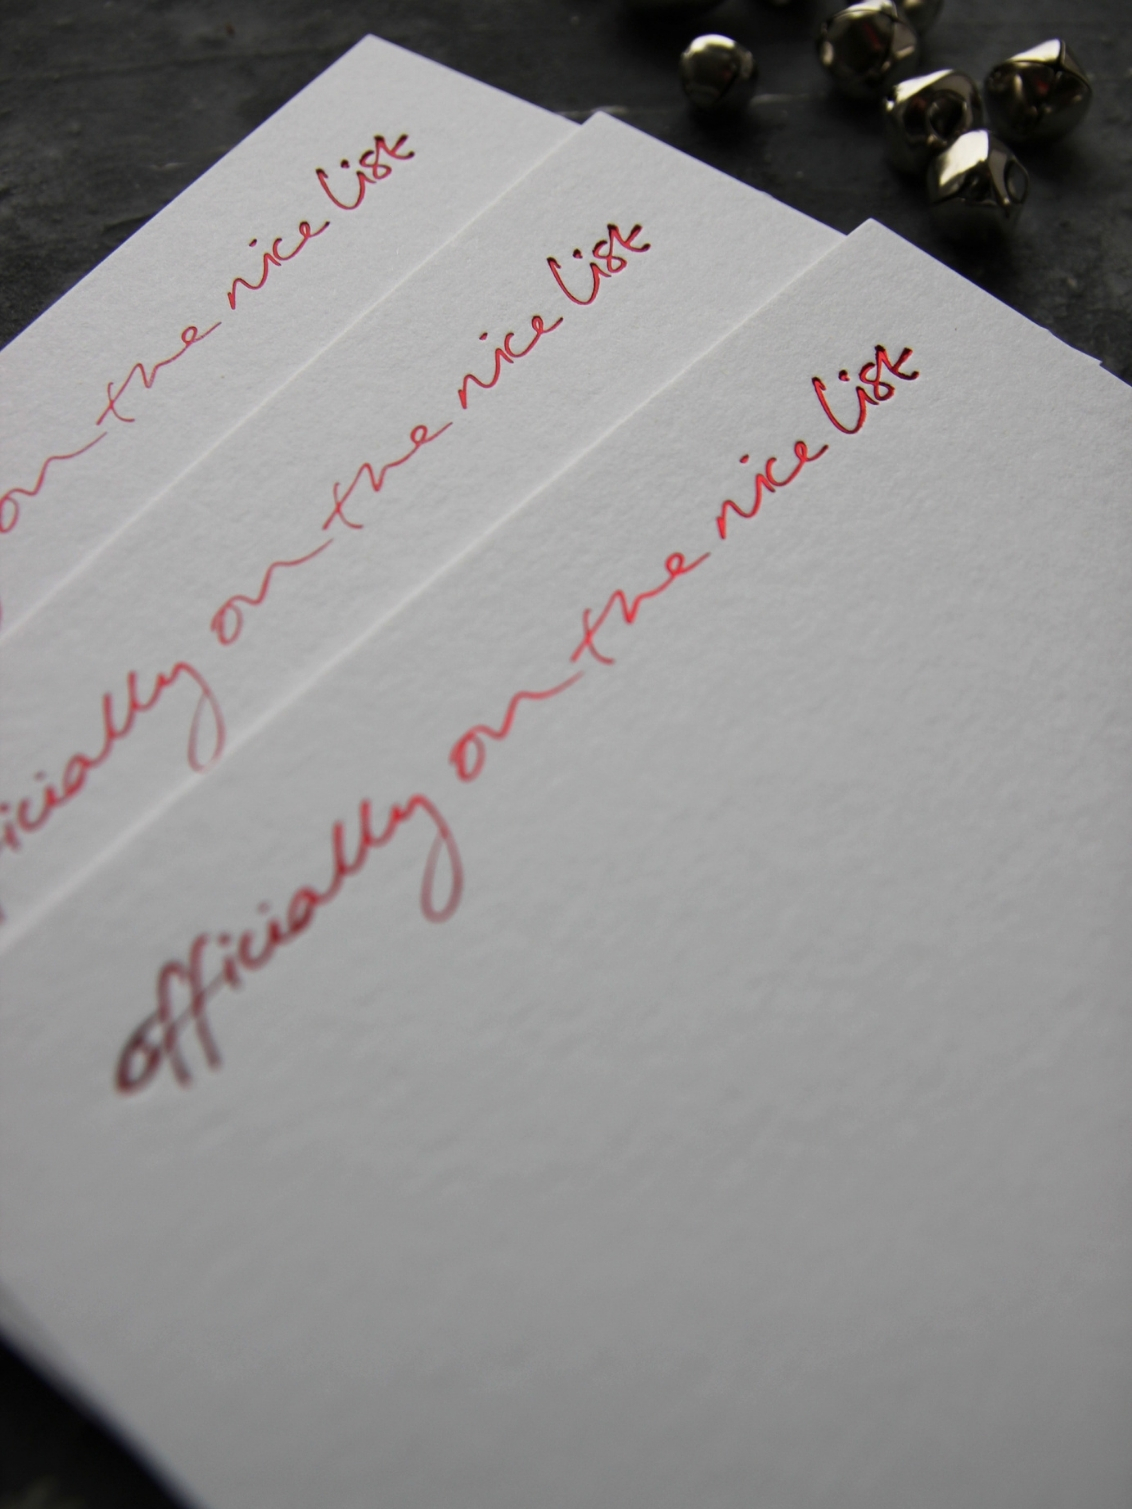 on the nice list
officially on the nice list
officially on the nice list